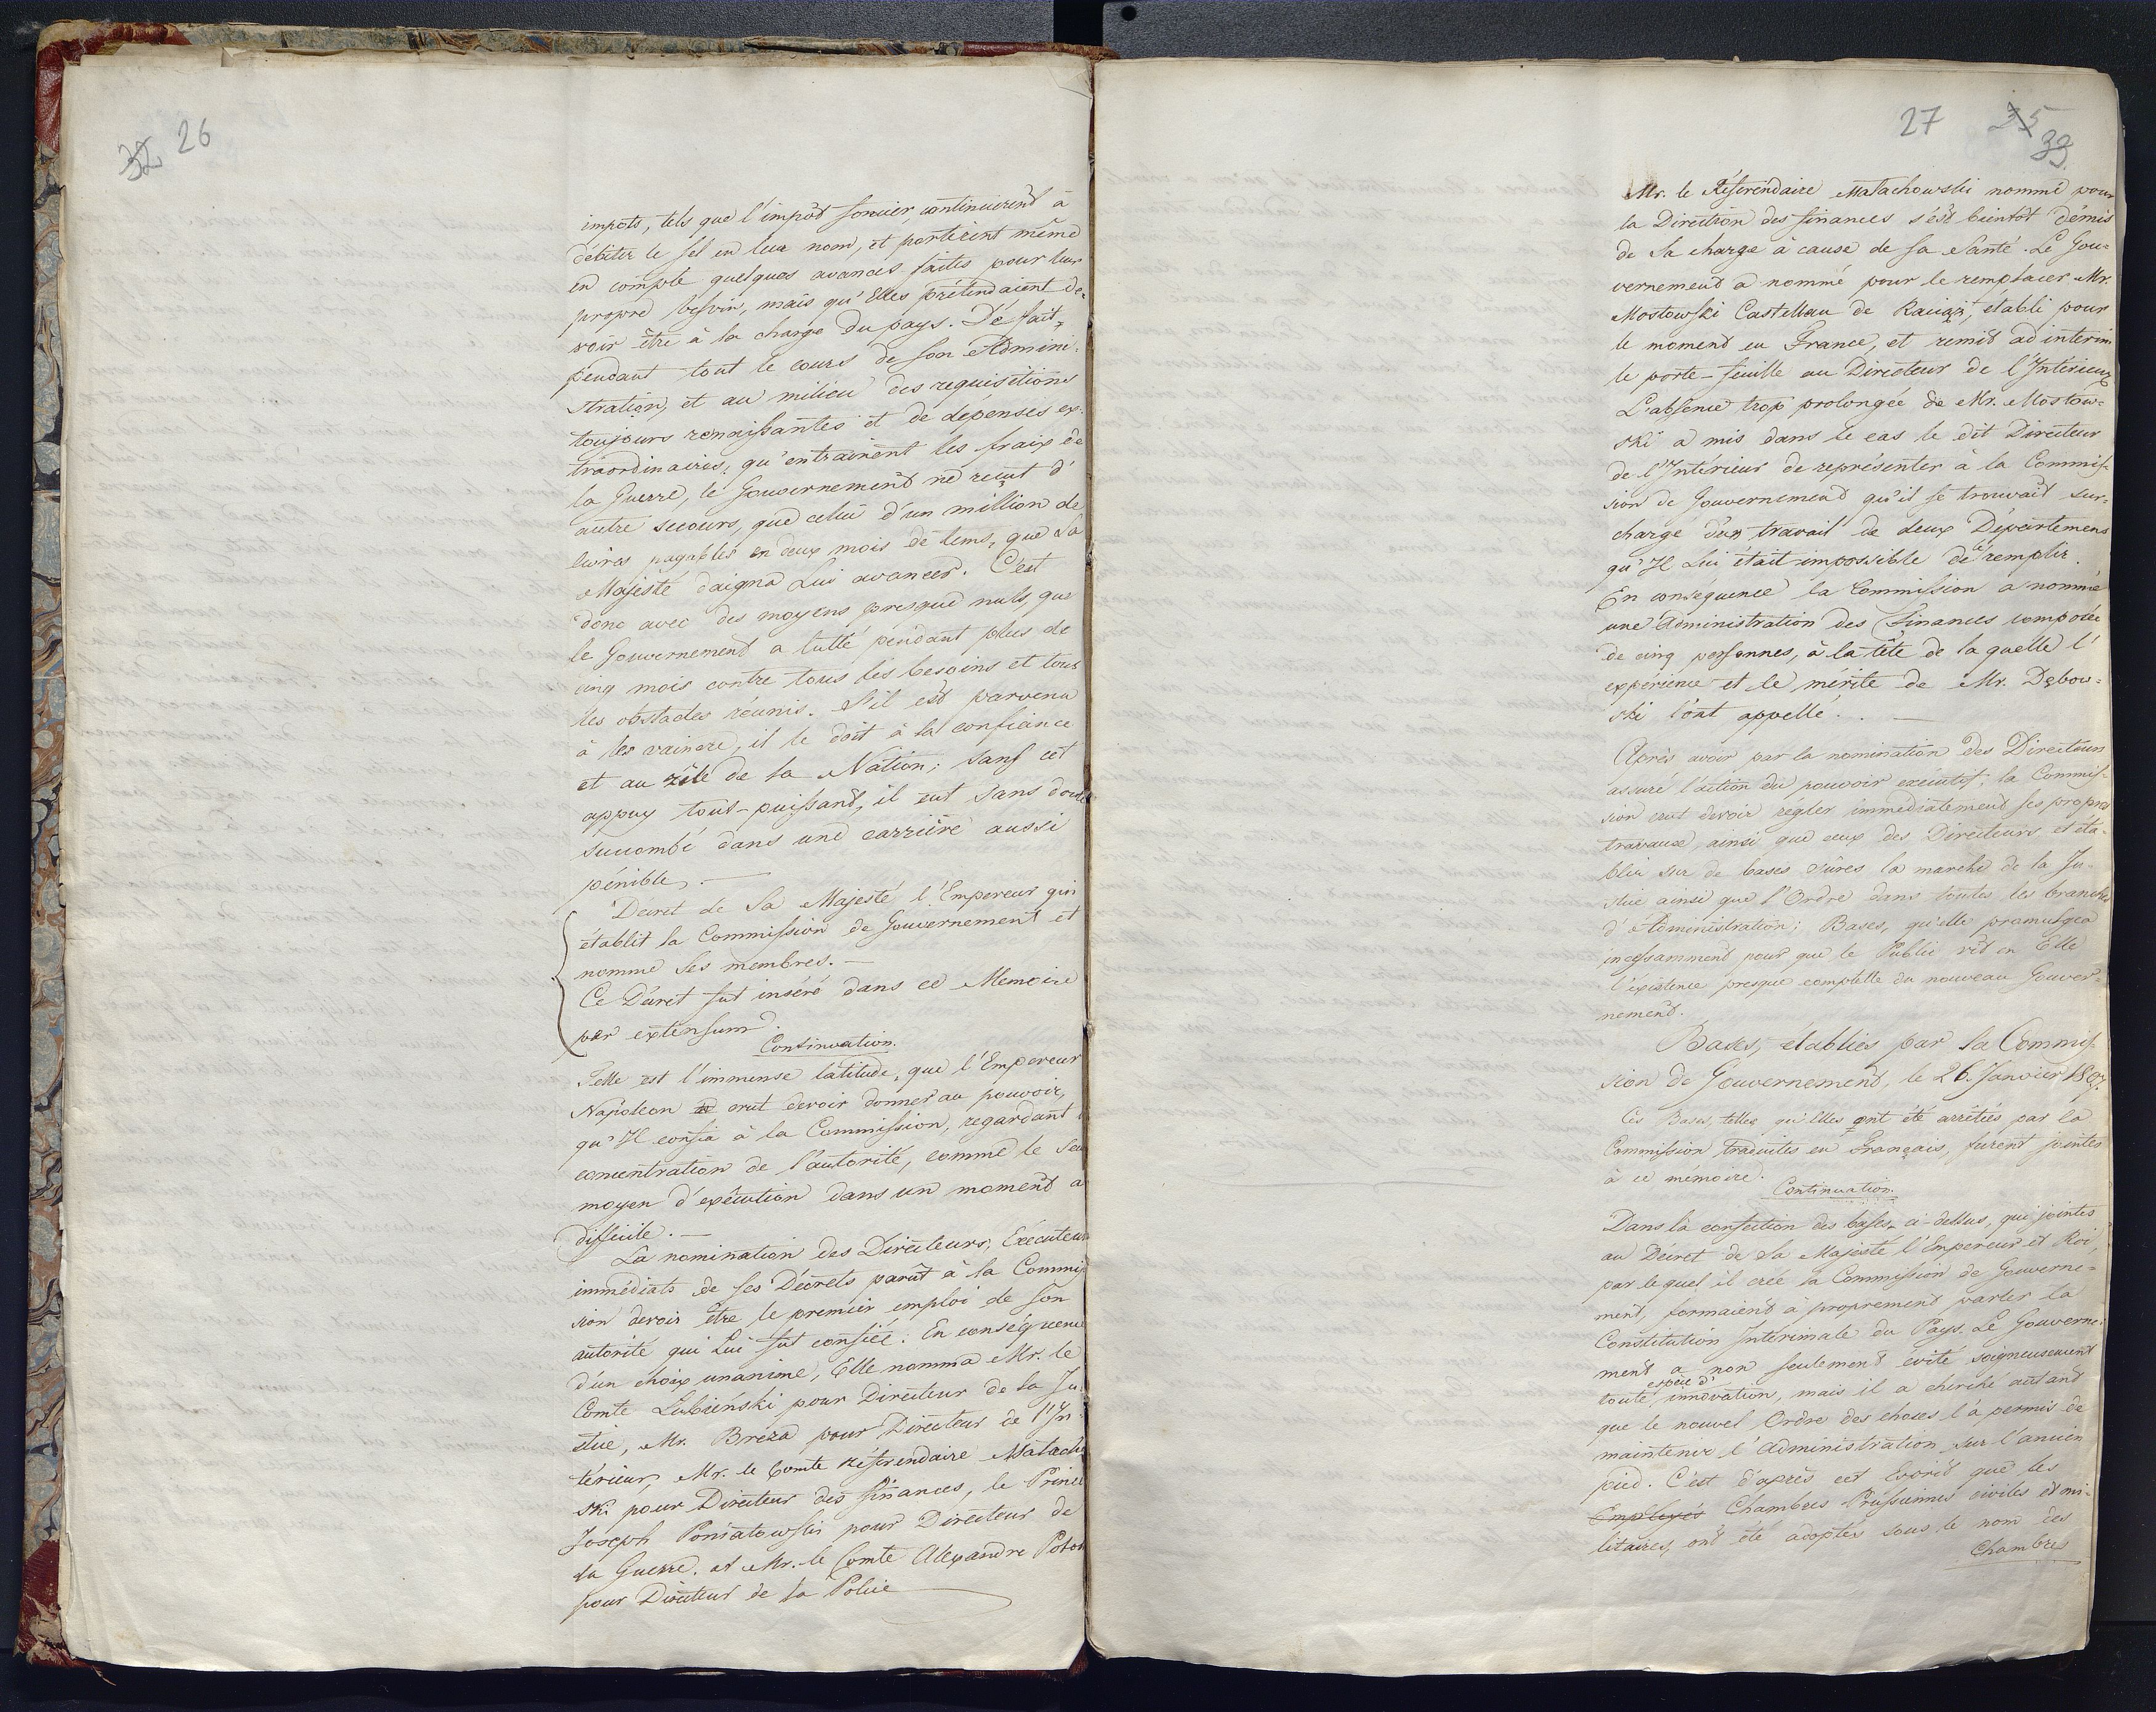 32 26
impots, tels que l'impôt foncier continuirent à
débiter le sel en leur nom, et porterent même
en compte quelques avances faites pour leur
propre besoin, mais qu'Elles prétendaient de-
voir être à la charge du pays. De fait,
pendant tout le cours de son Admini-
stration, et au milieu des requisitions
toujours renaissantes et de dépenses ex-
traordinaires, qu'entrainent les fraix de
la Guerre, le Gouvernement ne reçut d'
autre secours, que celui d'un million de
livres payables en deux mois de tems, que Sa
Majesté daigna Lui avancer. C'est
donc avec des moyens presque nuls, que
le Gouvernement a lutté pendant plus de
cinq mois contre tous les besoins et tous
les obstacles réunis. S'il est parvenu
à les vaincre, il le doit à la confiance
et au zèle de la Nation; sans cet
appuy tout-puissant, il eut sans doute
succombé dans une carrière aussi
pénible. —
Décret de Sa Majesté l'Empereur qui
établit la Commission de Gouvernement et
nomme ses membres. —
Ce Décret fut inséré dans ce Memoire
per extensum.
Continuation.
Telle est l'immense latitude, que l'Empereur
Napoleon crut devoir donner au pouvoir,
qu'Il confia à la Commission, regardant
concentration de l'autorité, comme le seul
moyen d'exécution dans un moment a
difficile. —
La nomination des Directeurs, Exécuteurs
immédiats de ses Décrets parût à la Commis-
sion devoir être le premier emploi de son
autorité qui Lui fut confiée. En conséquence
d'un choix unanime, Elle nomma Mr. le
Comte Lubieński pour Directeur de la Ju-
stice, Mr. Bréza pour Directeur de l'In-
térieur, Mr. le Comte référendaire Małacho
ski pour Directeur des finances, le Prince
Joseph Poniatowski pour Directeur de
la Guerre. et Mr. le Comte Alexandre Potoc
pour Directeur de la Police
27 35
39
Mr. le Référendaire Małachowski nommé pour
la Direction des finances s'est bientôt démis
de sa charge à cause de sa Santé. Le Gou-
vernement a nommé pour le remplacer Mr.
Mostowski Castellan de Raciąż, etabli pour
le moment en France, et remit ad interim
le porte-feuille au Directeur de l'Intérieur
L'absence trop prolongée de Mr. Mostow-
ski a mis dans le cas le dit Directeur
de l'Intérieur de représenter à la Commis-
sion de Gouvernement qu'il se trouvait sur-
chargé d'un travail de deux Départemens
qu'Il Lui était impossible de le remplir.
En conséquence la Commission a nommé
une Administration des Finances composée
de cinq personnes, à la tête de laquelle l'
expérience et le mérite de Mr. Dębow-
ski l'ont appellé. . —
Après avoir par la nomination des Directeurs
assuré l'action du pouvoir exécutif, la Commis-
sion crut devoir regler immédiatement ses propres
travaux, ainsi que ceux des Directeurs et éta-
blir sur de bases sûres la marche de la Ju-
stice ainsi que l'Ordre dans toutes les branches
d'Administration; Bases, qu'elle promulgea
incessamment pour que le Public vit en Elle
l'existence presque complette du nouveau Gouver-
nement.
Bases, établies par la Commis-
sion de Gouvernement, le 26. Janvier 1807.
Ces Bases, telles qu'Elles ont été arrêtées par la
Commission traduites en Français, furent jointes
à ce mémoire.
Continuation.
Dans la confection des bases ci-dessus, qui jointes
au Décret de Sa Majesté l'Empereur et Roi,
par lequel il crée la Commission de Gouverne-
ment, formaient à proprement parler la
Constitution Intérimale du Pays. Le Gouverne-
ment a non seulement évité soigneusement
toute espèce d'innovation, mais il a cherché autant
que le nouvel Ordre des choses l'a permis de
maintenir l'Administration sur l'ancien
pied. C'est d'après cet Esprit que les
Employés Chambres Prussiennes civiles et mi-
litaires, ont été adoptés sous le nom des
Chambres